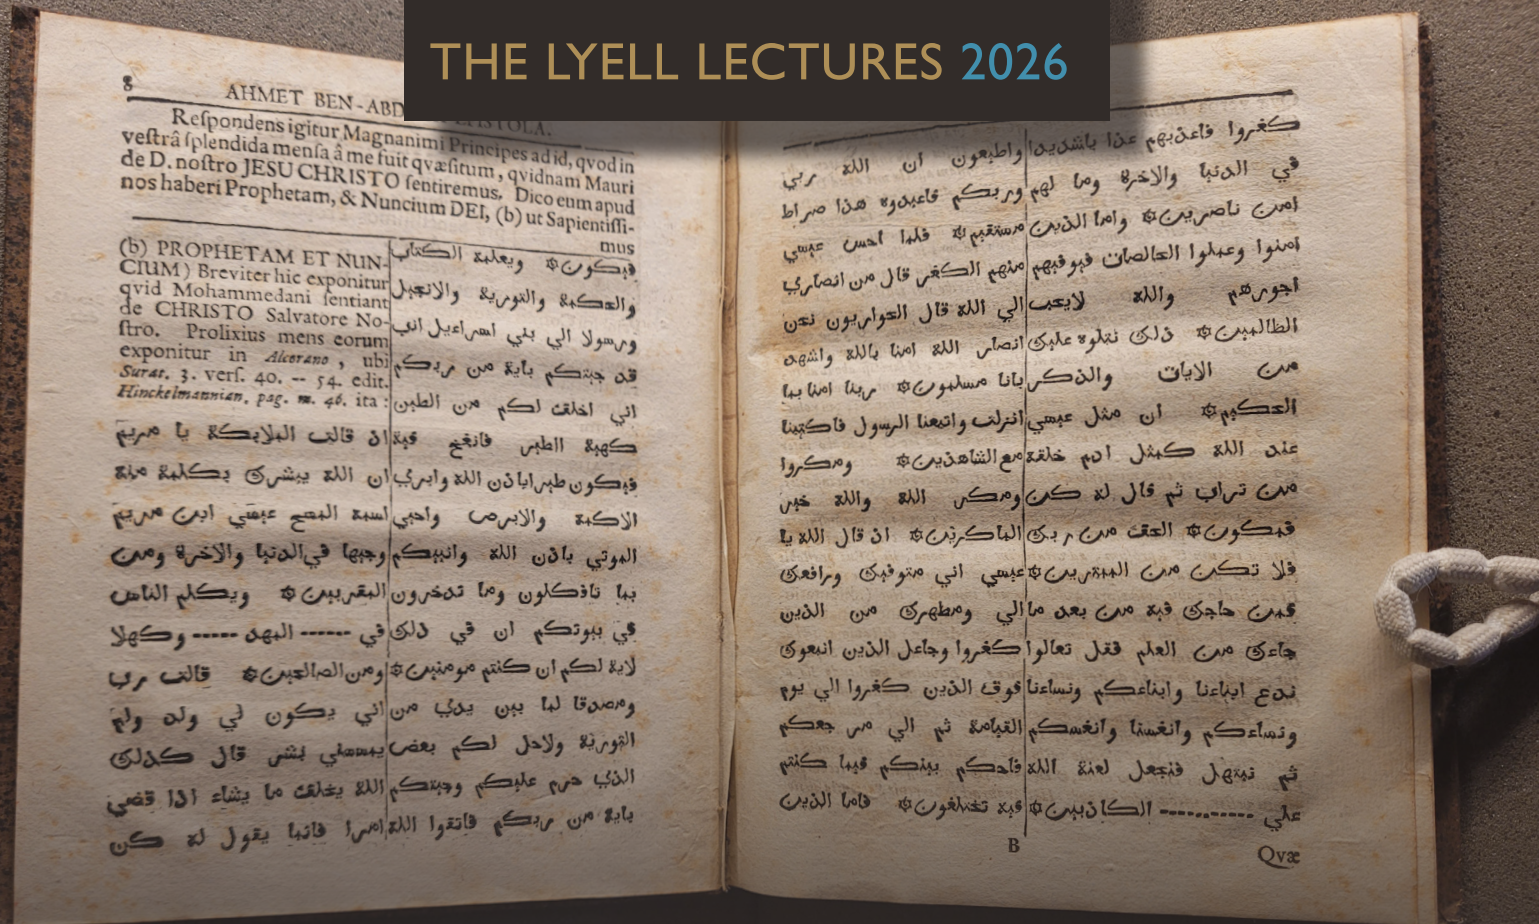 THE LYELL LECTURES 2026
8
AHMET BEN-ABD EPISTOLA.
Reſpondens igitur Magnanimi Principes ad id, qvod in
veſtrâ ſplendida menſa â me fuit qvæſitum, qvidnam Mauri
de D. noſtro JESU CHRISTO ſentiremus. Dico eum apud
nos haberi Prophetam, & Nuncium DEI, (b) ut Sapientiſſi-
mus
(b) PROPHETAM ET NUN-
CIUM) Breviter hic exponitur
qvid Mohammedani ſentiant
de CHRISTO Salvatore No-
ſtro. Prolixius mens eorum
exponitur in Alcorano, ubi
Surat. 3. verſ. 40. -- 54. edit.
Hinckelmannian. pag. m. 46. ita:
اذ قالت الملايكة يا مريم
ان الله يبشرك بكلمة منه
اسمه المسح عيسي ابن مريم
وجيها في الدنيا والاخرة ومن
المقربين ۞ ويكلم الناس
في ------ المهد ----- وكهلا
ومن الصالحين ۞ قالت رب
اني يكون لي ولد ولم
يمسسني بشر قال كذلك
الله يخلق ما يشاء اذا قضي
امرا فانما يقول له كن
فيكون ۞ ويعلمه الكتاب
والحكمة والتورية والانجيل
ورسولا الي بني اسراءيل اني
قد جيتكم باية من ربكم
اني اخلق لكم من الطين
كهية الطير فانفخ فيه
فيكون طيرا باذن الله وابري
الاكمه والابرص واحيي
الموتي باذن الله وانبيكم
بما تاكلون وما تدخرون
في بيوتكم ان في ذلك
لاية لكم ان كنتم مومنين ۞
ومصدقا لما بين يدي من
التورية ولاحل لكم بعض
الذي حرم عليكم وجيتكم
باية من ربكم فاتقوا الله
واطيعون ان الله ربي
وربكم فاعبدوه هذا صراط
مستقيم ۞ فلما احس عيسي
منهم الكفر قال من انصاري
الي الله قال الحواريون نحن
انصار الله امنا بالله واشهد
بانا مسلمون ۞ ربنا امنا بما
انزلت واتبعنا الرسول فاكتبنا
مع الشاهدين ۞ ومكروا
ومكر الله والله خير
الماكرين ۞ اذ قال الله يا
عيسي اني متوفيك ورافعك
الي ومطهرك من الذين
كفروا وجاعل الذين اتبعوك
فوق الذين كفروا الي يوم
القيامة ثم الي مر جعكم
فاحكم بينكم فيما كنتم
فيه تختلفون ۞ فاما الذين
كفروا فاعذبهم عذا باشديدا
في الدنيا والاخرة وما لهم
من ناصرين ۞ واما الذين
امنوا وعملوا الصالحات فيوفيهم
اجورهم والله لايحب
الظالمين ۞ ذلك نتلوه عليك
من الايات والذكر
الحكيم ۞ ان مثل عيسي
عند الله كمثل ادم خلقه
من تراب ثم قال له كن
فيكون ۞ الحق من ربك
فلا تكن من الممترين ۞
فمن حاجك فيه من بعد ما
جاءك من العلم فقل تعالوا
ندع ابناءنا وابناءكم ونساءنا
ونساءكم وانفسنا وانفسكم
ثم نبتهل فنجعل لعنة الله
علي ------------ الكاذبين ۞
B
Qvæ